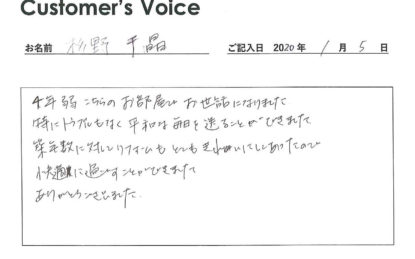 Customer's Voice
お名前 杉野 千晶 ご記入日 2020 年 1 月 5 日
4年弱 こちらの お部屋で お世話になりました
特にトラブルもなく 平和な 毎日を 送ることができました
築年数に対して リフォームも とても きれいにしてあったので
快適に過ごすことができました
ありがとうございました.